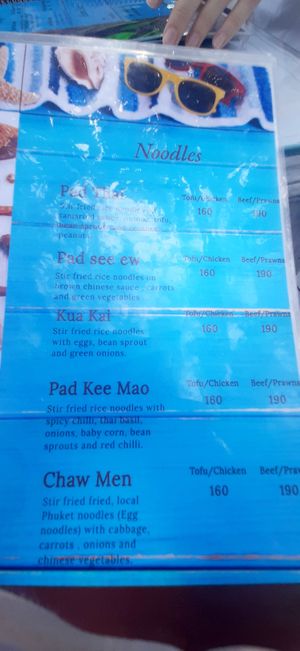 Noodles
Pad Thai
Tofu/Chicken Beef/Prawns
Stir fried rice noodles
tamarind sauce tofu,
bean sprout
peanuts
160 190
Pad see ew
Tofu/Chicken Beef/Prawns
Stir fried rice noodles in
brown chinese sauce , carrots
and green vegetables
160 190
Kua Kai
Tofu/Chicken Beef/Prawns
Stir fried rice noodles
with eggs, bean sprout
and green onions.
160 190
Pad Kee Mao
Tofu/Chicken Beef/Prawns
Stir fried rice noodles with
spicy chilli, thai basil,
onions, baby corn, bean
sprouts and red chilli.
160 190
Chaw Men
Tofu/Chicken Beef/Praw
Stir fried fried, local
Phuket noodles (Egg
noodles) with cabbage,
carrots , onions and
chinese vegetables.
160 190